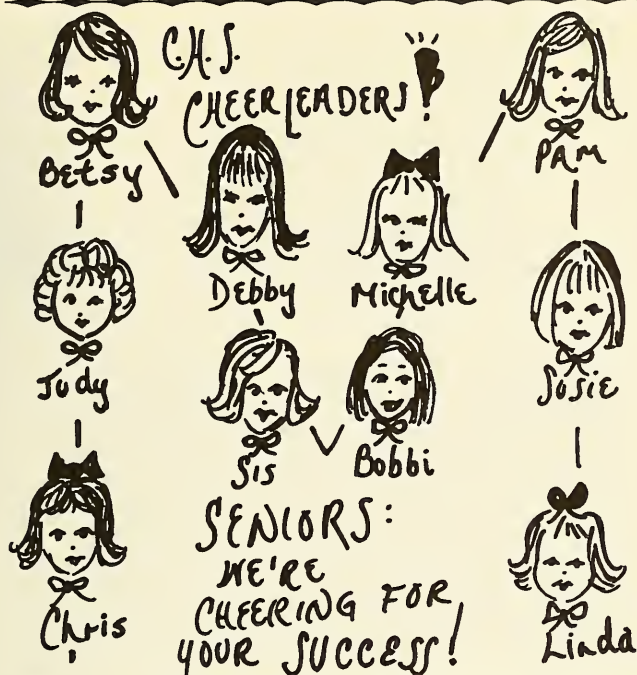 C.H.S.
CHEERLEADERS!
Betsy
PAM
Debby
Michelle
Judy
Susie
Sis
Bobbi
Chris
Linda
SENIORS:
WE'RE
CHEERING FOR
YOUR SUCCESS!